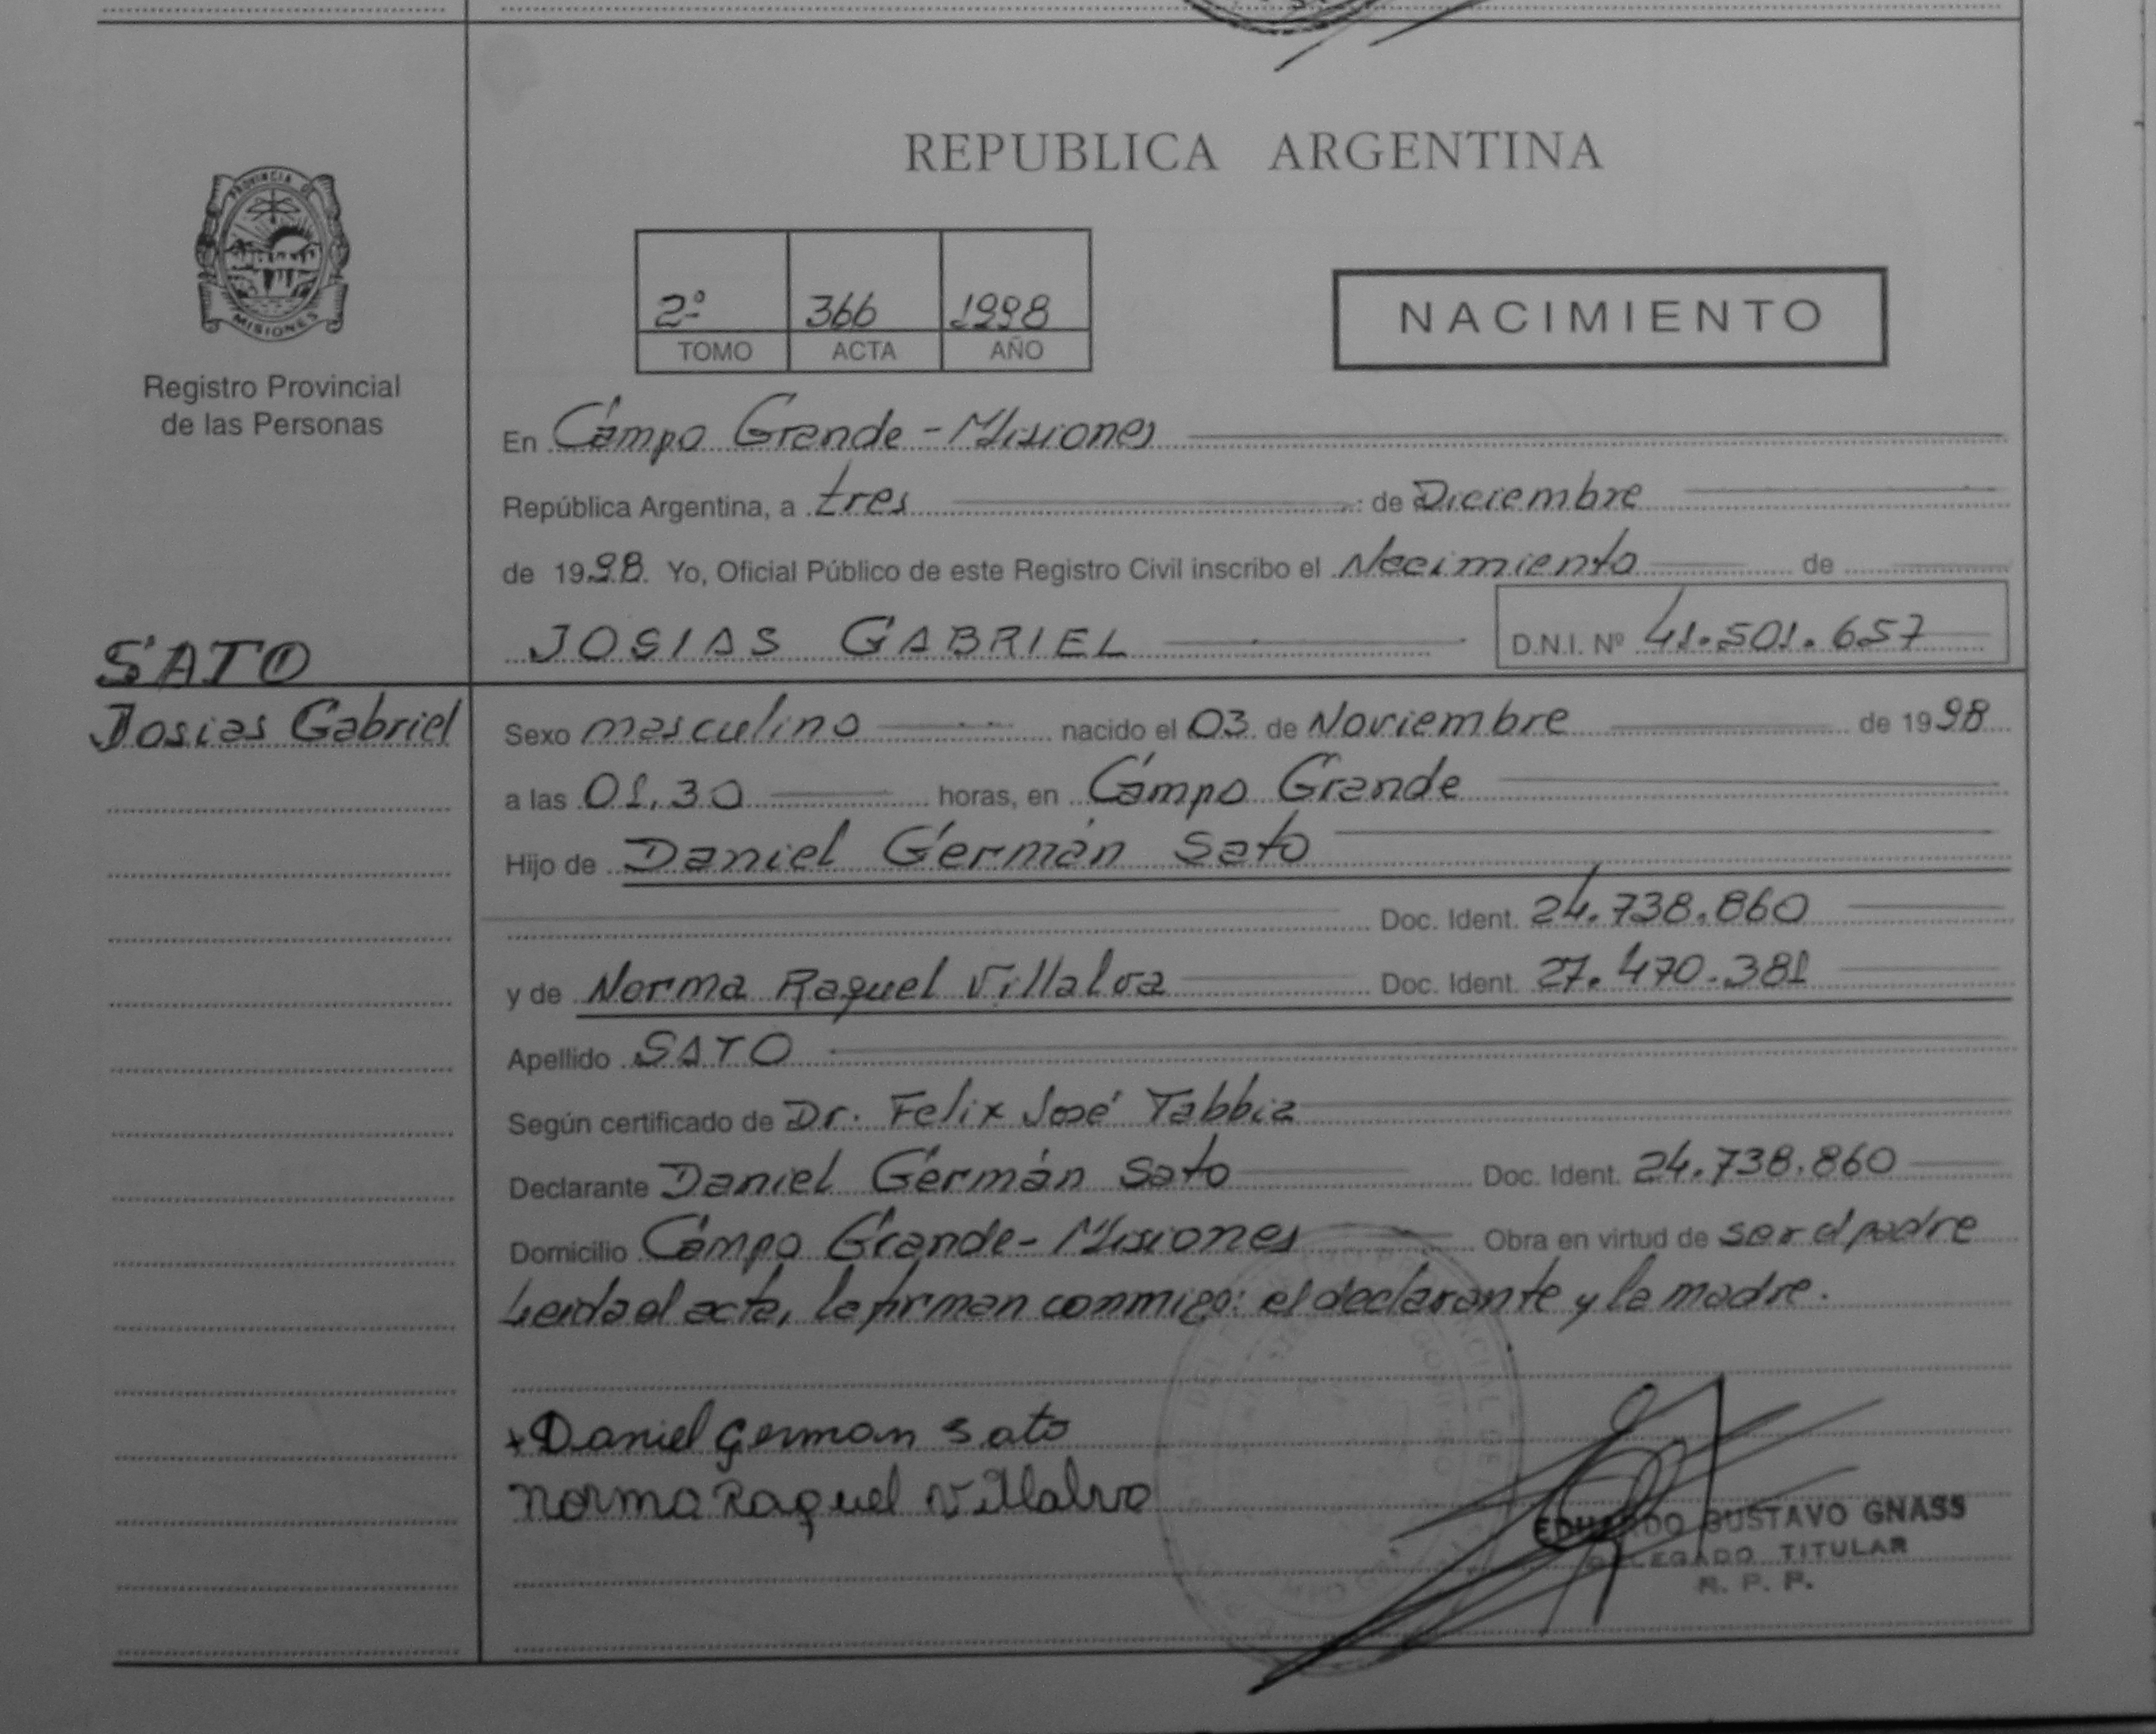 PROVINCIA DE
MISIONES
Registro Provincial
de las Personas
SATO
Josias Gabriel
REPUBLICA ARGENTINA
2º 366 1998
TOMO ACTA AÑO
NACIMIENTO
En Campo Grande - Misiones
República Argentina, a tres de Diciembre
de 1998. Yo, Oficial Público de este Registro Civil inscribo el Nacimiento de
JOSIAS GABRIEL D.N.I. Nº 41.501.657
Sexo masculino nacido el 03 de Noviembre de 1998
a las 01.30 horas, en Campo Grande
Hijo de Daniel Germán Sato
Doc. Ident. 24.738.860
y de Norma Raquel Villalva Doc. Ident. 27.470.381
Apellido SATO
Según certificado de Dr. Felix José Tabbia
Declarante Daniel Germán Sato Doc. Ident. 24.738.860
Domicilio Campo Grande - Misiones Obra en virtud de ser el padre
Leida el acta, la firman conmigo: el declarante y la madre.
+Daniel German Sato
Norma Raquel Villalva
EDUARDO GUSTAVO GNASS
DELEGADO TITULAR
R. P. P.